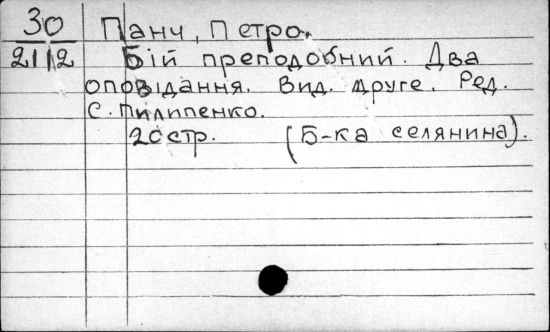 30 Панч, Петро.
2112 Бій преподобний. Два
оповідання. Вид. друге. Ред.
С. Пилипенко.
20 стр. (Б-ка селянина).